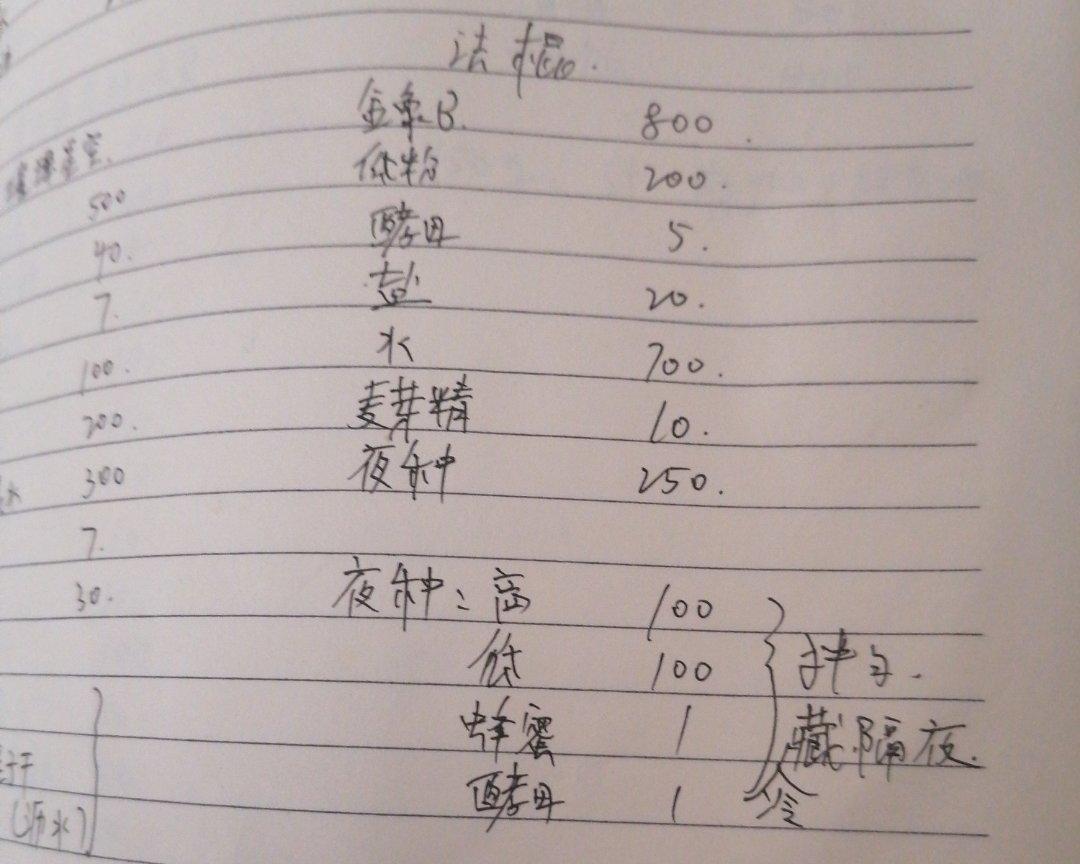 法棍.
金象B. 800.
低粉 200.
酵母 5.
盐 20.
水 700.
麦芽精 10.
夜种 250.
夜种: 高 100
低 100
蜂蜜 1
酵母 1
拌匀.
冷藏隔夜.
500
40.
7.
100.
200.
300
7.
30.
(沥水)